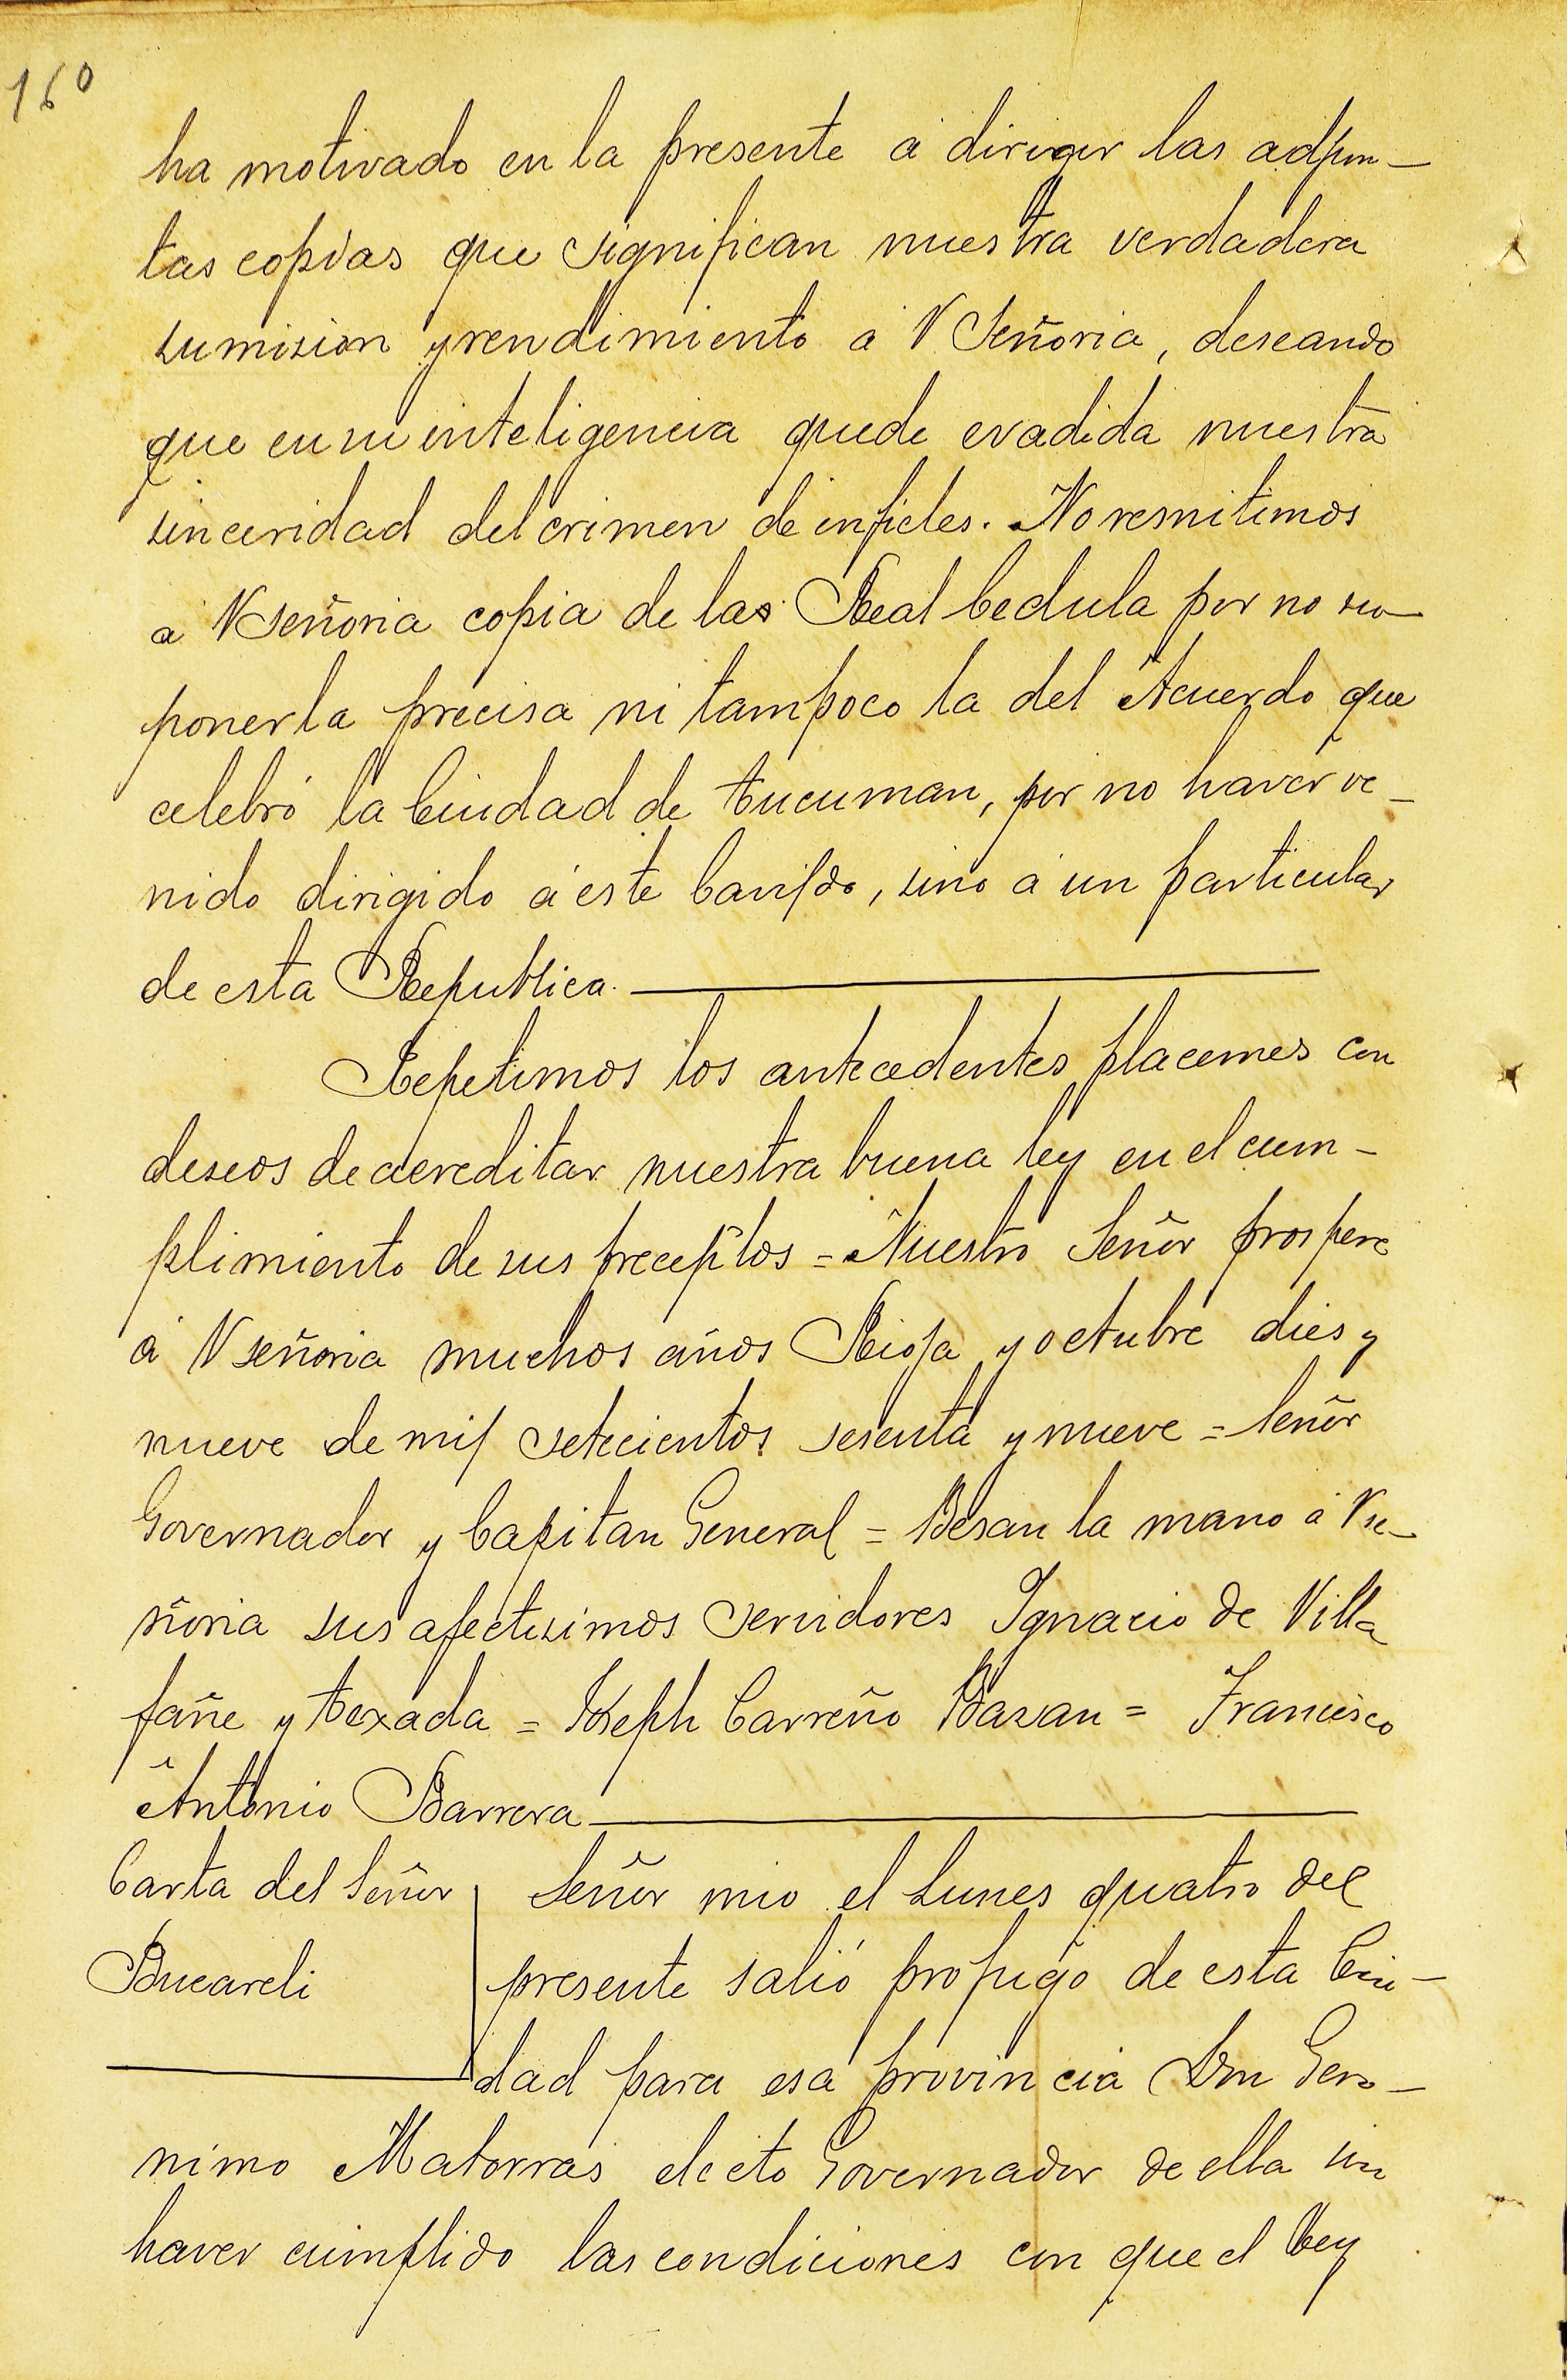 160
ha motivado en la presente á dirigir las adjun-
tas copias que significan nuestra verdadera
sumision y rendimiento á V Señoria, deseando
que en su inteligencia quede evadida nuestra
sinceridad del crimen de infieles. No remitimos
a VSeñoria copia de las Real Cedula por no su-
ponerla precisa ni tampoco la del Acuerdo que
celebró la Ciudad de Tucuman, por no haver ve-
nido dirigido á este Cavildo, sino á un particular
de esta Republica.
Repetimos los antecedentes placemes con
deseos de acreditar nuestra buena ley en el cum-
plimiento de sus preceptos = Nuestro Señor prospere
á V señoria muchos años Rioja y octubre dies y
nueve de mil setecientos sesenta y nueve = Señor
Governador y Capitan General = Besan la mano á Vse-
ñoria sus afectisimos servidores Ignacio de Villa
fañe y Texada = Joseph Carreño Bazan = Francisco
Antonio Barrera
Carta del Señor
Bucareli
Señor mio el Lunes quatro del
presente salió profugo de esta Ciu-
dad para esa provincia Don Gero-
nimo Matorras electo Governador de ella sin
haver cumplido las condiciones con que el Rey